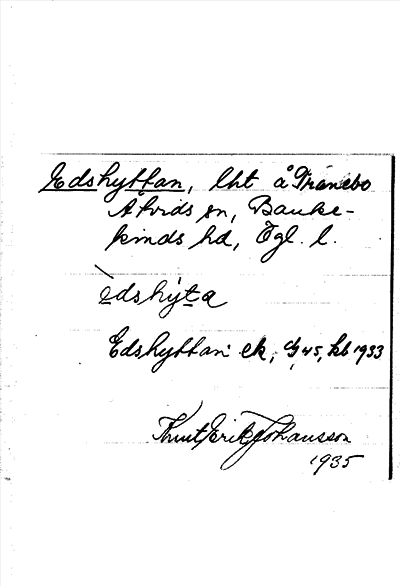 Edshyttan, lht å Tranebo
Åtvids sn, Banke-
kinds hd, Ögl. l.
èdshỳta
Edshyttan ek, G 45, kb 1933
Knut Erik Johansson
1935